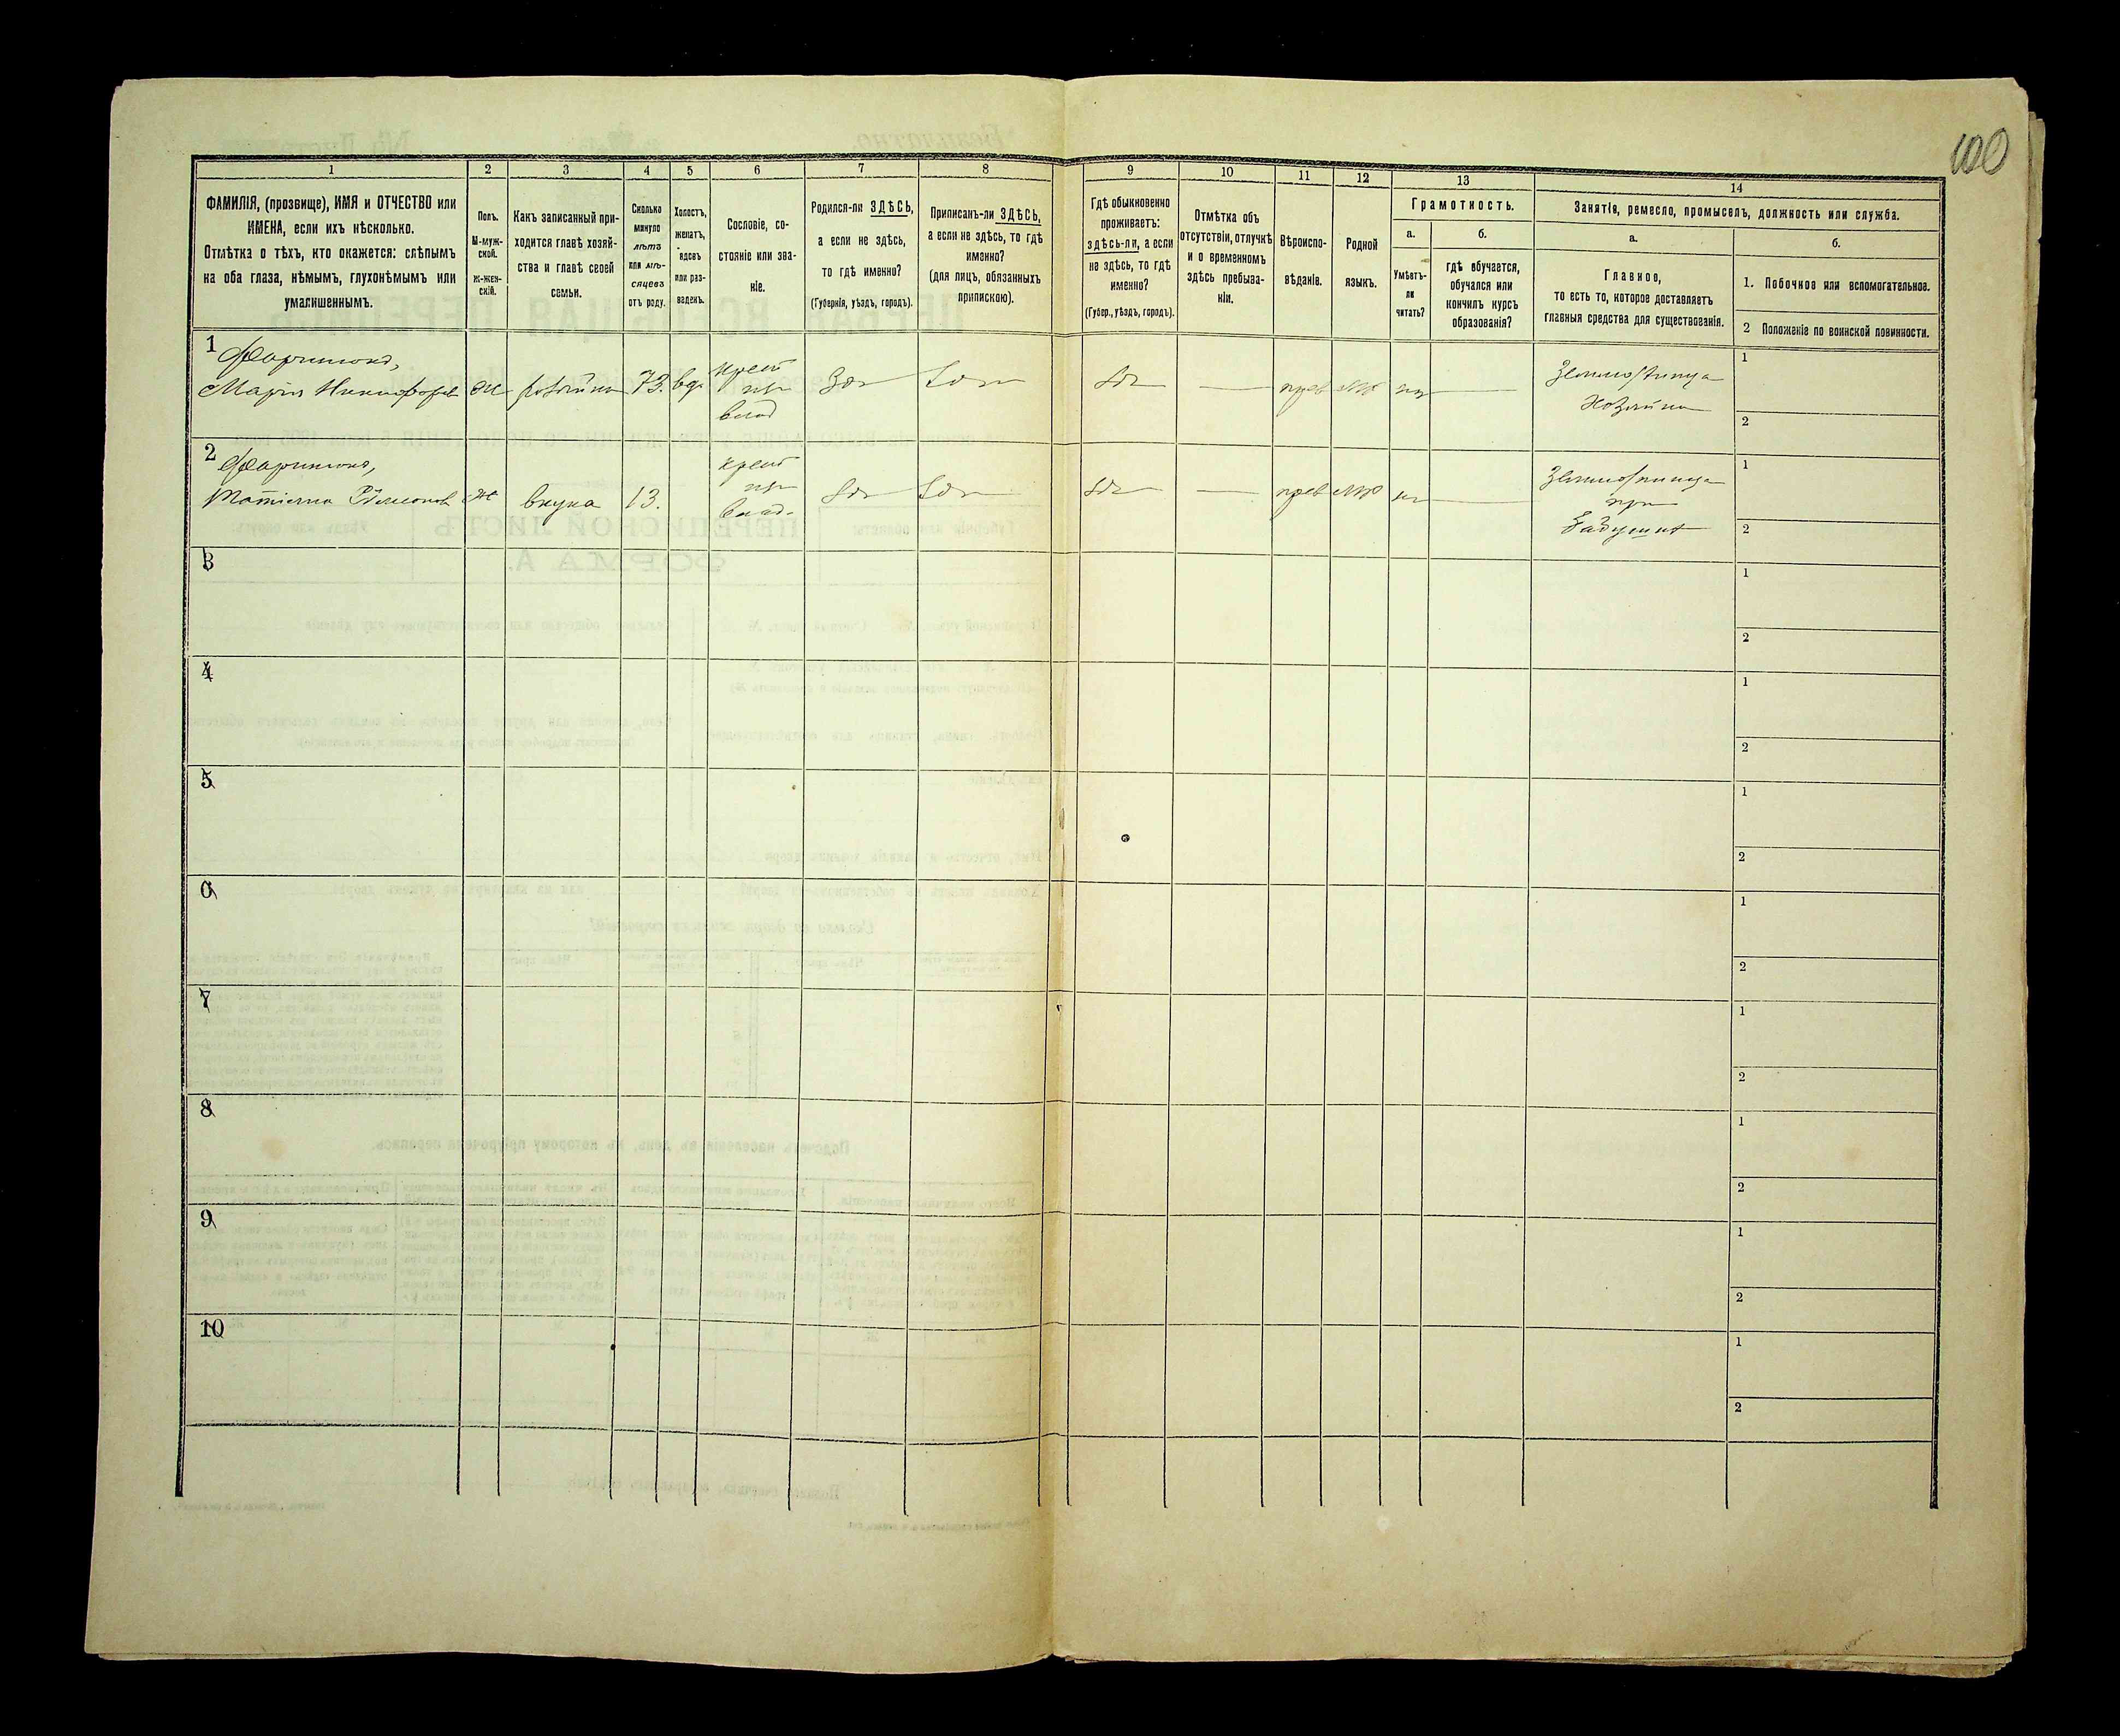 100
1
2
3
4
5
6
7
8
9
10
11
12
13
14
ФАМИЛІЯ, (прозвище), ИМЯ и ОТЧЕСТВО или
ИМЕНА, если ихъ нѣсколько.
Отмѣтка о тѣхъ, кто окажется: слѣпымъ
на оба глаза, нѣмымъ, глухонѣмымъ или
умалишеннымъ.
Полъ.
М-муж-
ской.
Ж-жен-
скій.
Какъ записанный при-
ходится главѣ хозяй-
ства и главѣ своей
семьи.
Сколько
минуло
лѣтъ
или мѣ-
сяцевъ
отъ роду.
Холостъ,
женатъ,
вдовъ
или раз-
веденъ.
Сословіе, со-
стояніе или зва-
ніе.
Родился-ли ЗДѢСЬ,
а если не здѣсь,
то гдѣ именно?
(Губернія, уѣздъ, городъ).
Приписанъ-ли ЗДѢСЬ,
а если не здѣсь, то гдѣ
именно?
(для лицъ, обязанныхъ
припискою).
Гдѣ обыкновенно
проживаетъ:
здѣсь-ли, а если
не здѣсь, то гдѣ
именно?
(Губер., уѣздъ, городъ).
Отмѣтка объ
отсутствіи, отлучкѣ
и о временномъ
здѣсь пребыва-
ніи.
Вѣроиспо-
вѣданіе.
Родной
языкъ.
Грамотность.
а.
Умѣетъ-
ли
читать?
б.
гдѣ обучается,
обучался или
кончилъ курсъ
образованія?
Занятіе, ремесло, промыселъ, должность или служба.
а.
Главное,
то есть то, которое доставляетъ
главныя средства для существованія.
б.
1. Побочное или вспомогательное.
2 Положеніе по воинской повинности.
1
Марія Никифоров
Ж
хозяйка
73.
вд.
крест
из
влад
Зд
Зд
Зд
прав
мр
нѣт
Хозяйка
1
2
2
Ж
внука
13.
крест
из
влад.
Зд
Зд
Зд
прав
мр
при
бабушкѣ
1
2
3
1
2
4
1
2
5
1
2
6
1
2
7
1
2
8
1
2
9
1
2
10
1
2